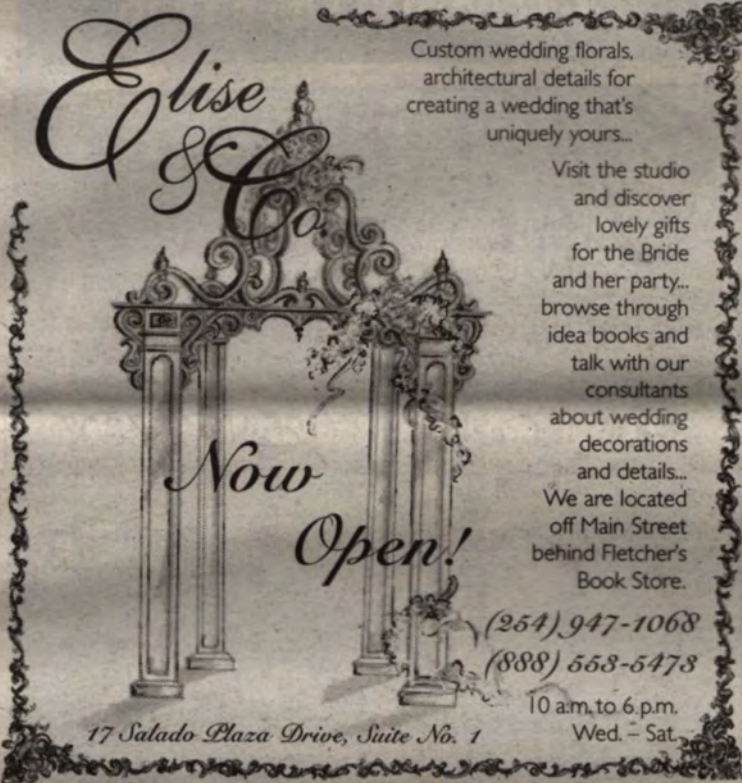 Elise
& Co.
Custom wedding florals,
architectural details for
creating a wedding that's
uniquely yours...
Visit the studio
and discover
lovely gifts
for the Bride
and her party...
browse through
idea books and
talk with our
consultants
about wedding
decorations
and details...
We are located
off Main Street
behind Fletcher's
Book Store.
Now
Open!
(254) 947-1068
(888) 553-5473
10 a.m. to 6 p.m.
Wed. – Sat.
17 Salado Plaza Drive, Suite No. 1